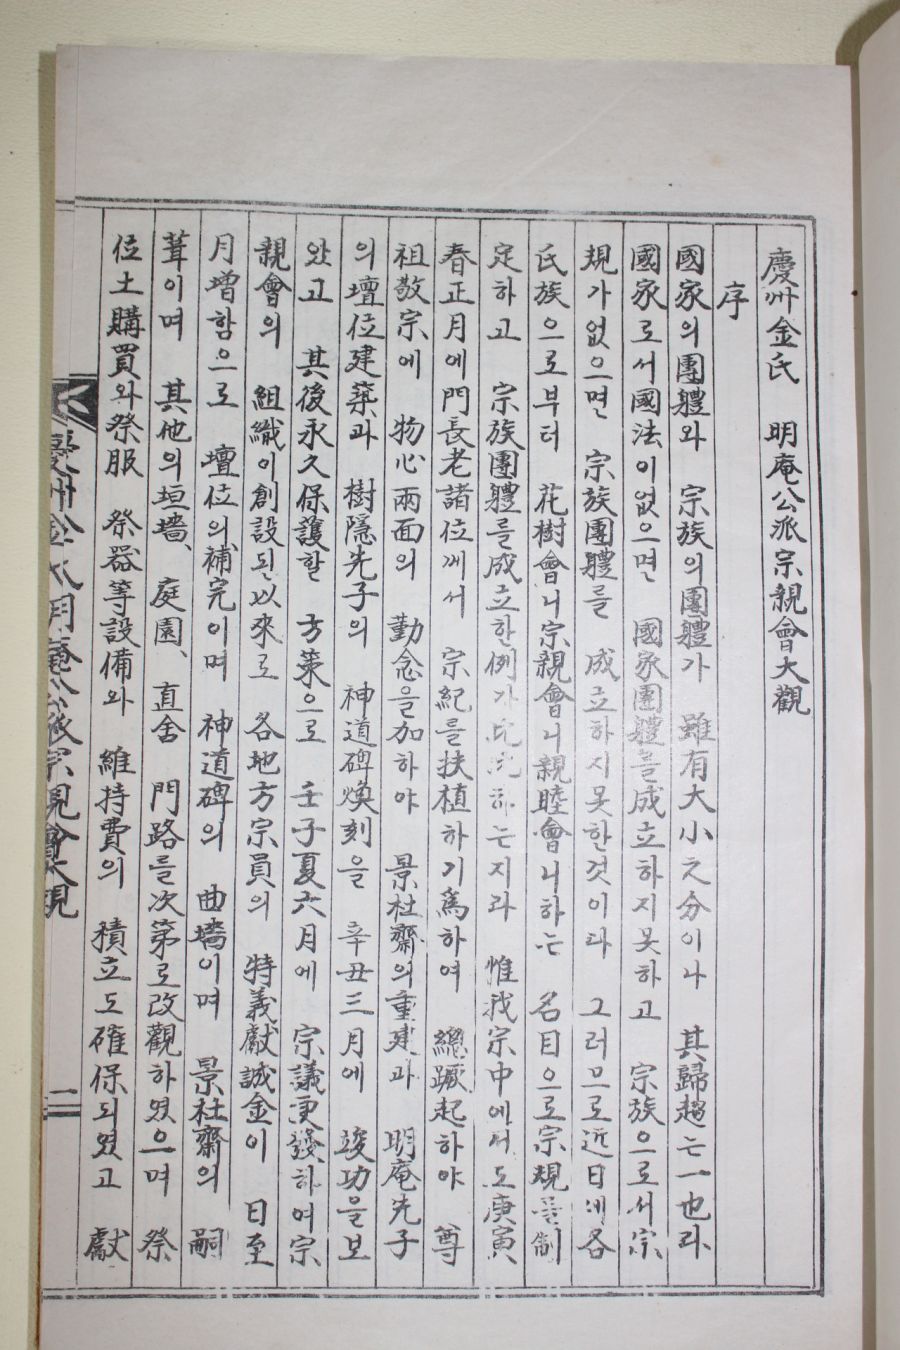 慶州金氏 明庵公派宗親會大觀
序
國家의團體와 宗族의團體가 雖有大小之分이나 其歸趨는一也라
國家로서國法이없으면 國家團體를成立하지못하고 宗族으로서宗
規가없으면 宗族團體를 成立하지못할것이다 그러므로近日에各
氏族으로부터 花樹會니宗親會니親睦會니하는 名目으로宗規를制
定하고 宗族團體를成立한例가比比하는지라 惟我宗中에서도庚寅
春正月에門長老諸位께서 宗紀를扶植하기爲하여 總蹶起하야 尊
祖敬宗에 物心兩面의 勤念을加하야 景杜齋의重建과 明庵先子
의壇位建築과 樹隱先子의 神道碑煥刻을 辛丑三月에 竣功을보
았고 其後永久保護할 方策으로 壬子夏六月에 宗議更發하여宗
親會의 組織이創設된以來로 各地方宗員의 特義獻誠金이 日至
月增함으로 壇位의補完이며 神道碑의 曲墻이며 景杜齋의 嗣
葺이며 其他의垣墻、庭園、直舍 門路를次第로改觀하였으며 祭
位土購買와祭服 祭器等設備와 維持費의 積立도確保되였고 獻
慶州金氏明庵公派宗親會大觀
一